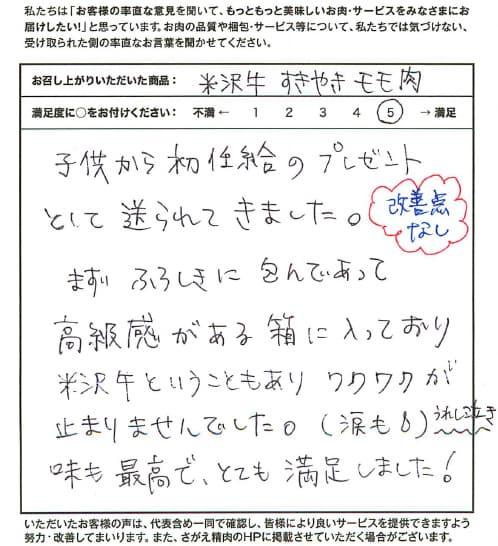 私たちは「お客様の率直な意見を聞いて、もっともっと美味しいお肉・サービスをみなさまにお
届けしたい!」と思っています。お肉の品質や梱包・サービス等について、私たちでは気づけない、
受け取られた側の率直なお言葉を聞かせてください。
お召し上がりいただいた商品： 米沢牛 すきやき モモ肉
満足度に○をお付けください： 不満 ← 1 2 3 4 5 → 満足
子供から初任給のプレゼント
として送られてきました。
改善点
なし
まずい ふろしきに包んであって
高級感がある箱に入っており
米沢牛ということもあり ワクワクが
止まりませんでした。(涙も)うれし泣き
味も最高で、とても満足しました！
いただいたお客様の声は、代表含め一同で確認し、皆様により良いサービスを提供できますよう
努力・改善してまいります。また、さがえ精肉のHPに掲載させていただく場合がございます。